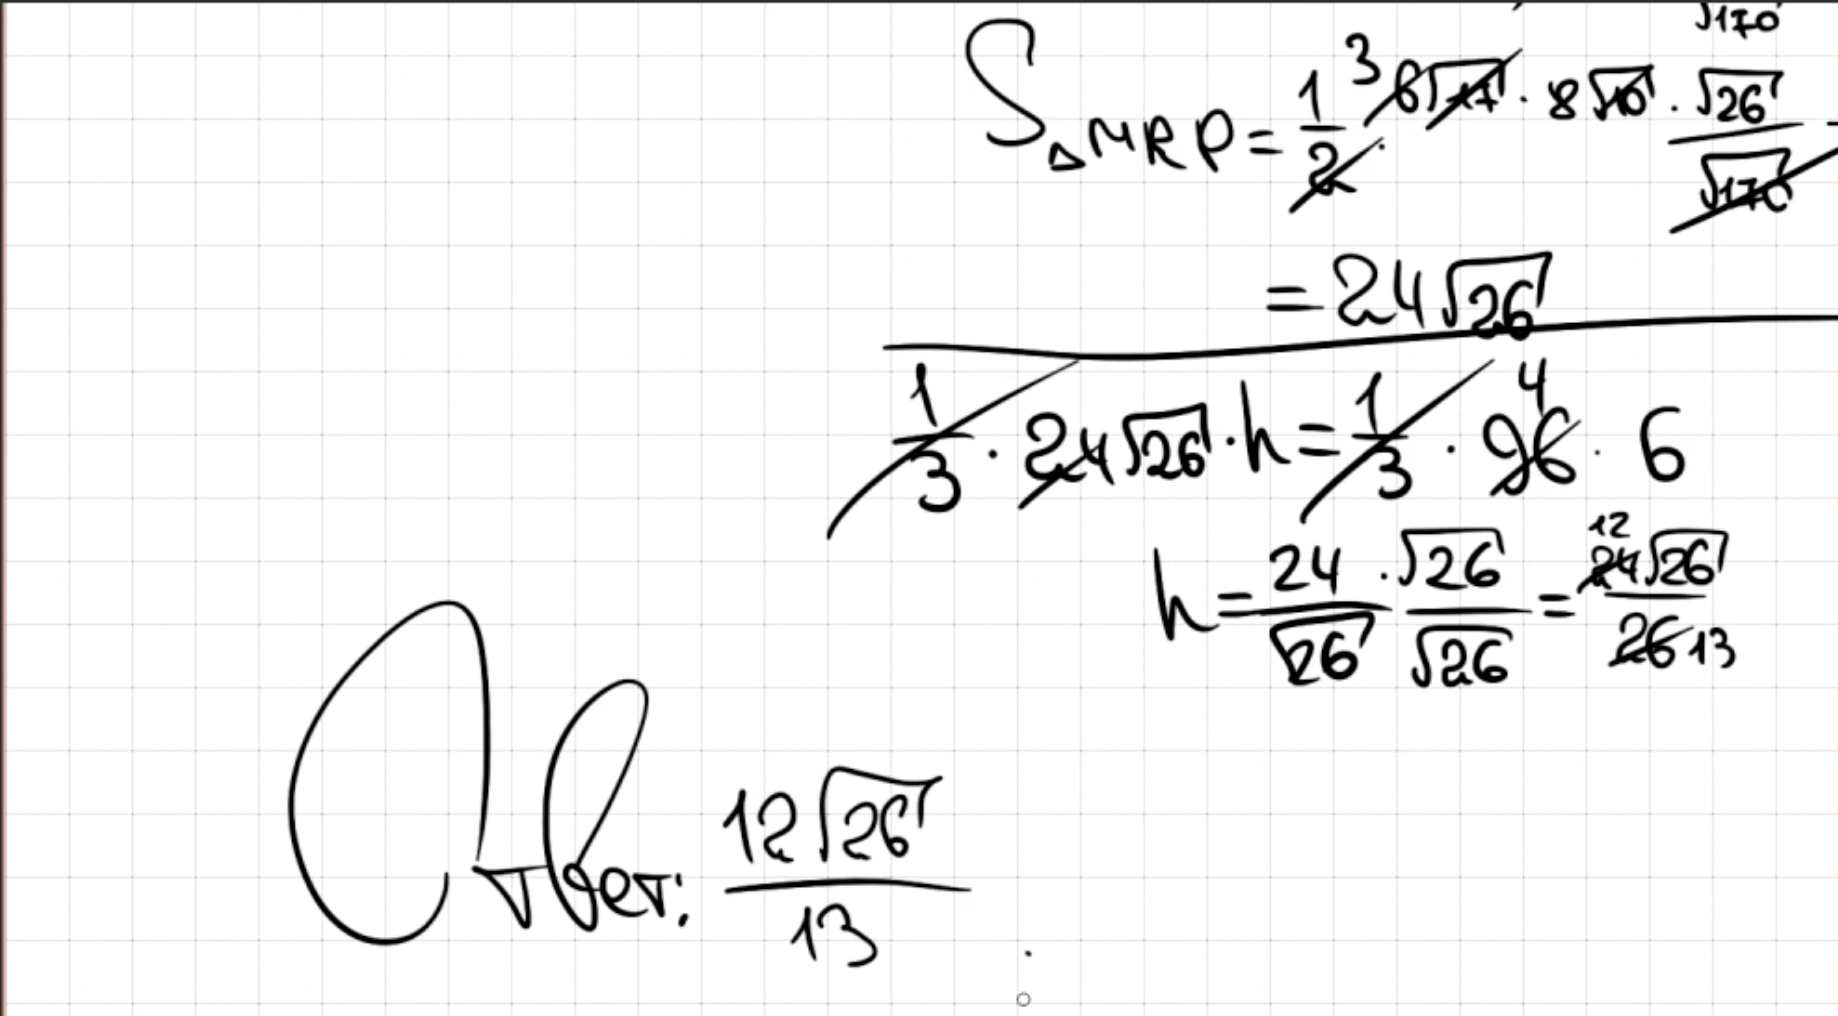 √170
S△MRP = 1/2 · 3 6√17 · 8√10 · √26/√170
= 24√26
1/3 · 24√26 · h = 1/3 · 96 4 · 6
h = 24/√26 · √26/√26 = 12 24√26/26 13
Ответ: 12√26/13